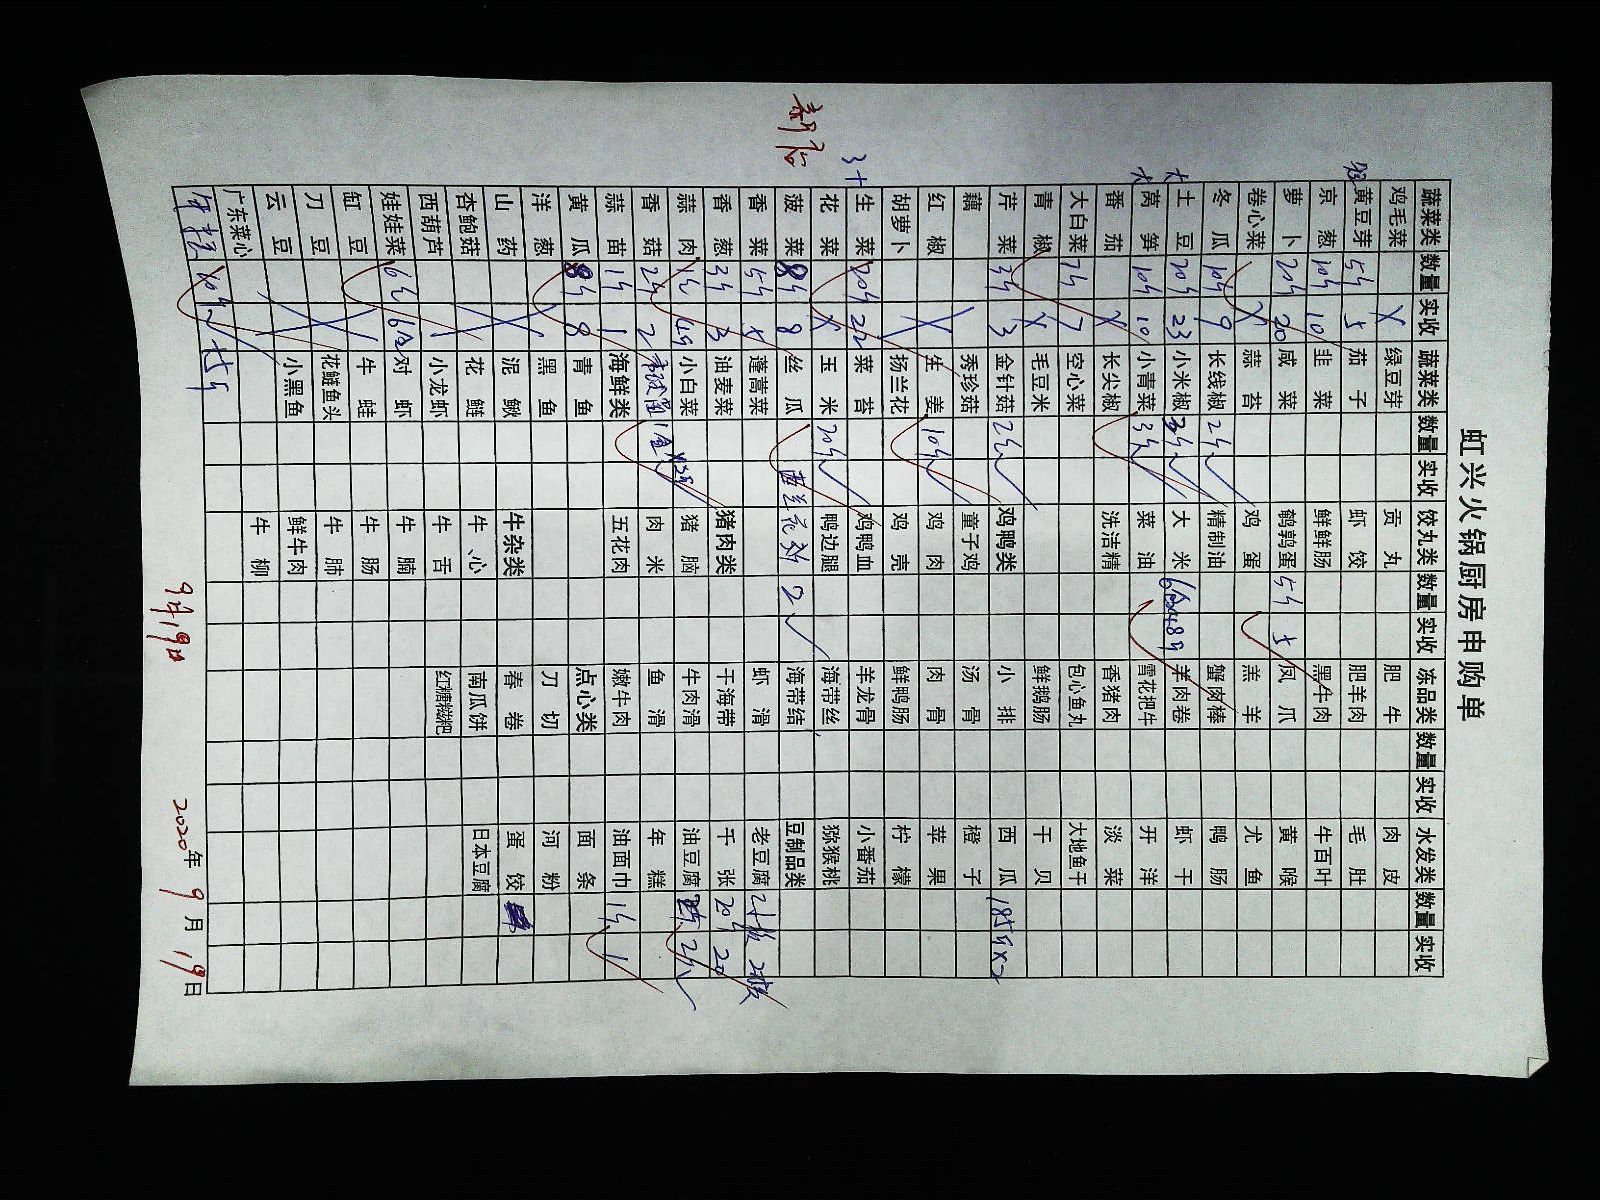 虹兴火锅厨房申购单
蔬菜类 数量 实收 蔬菜类 数量 实收 饺丸类 数量 实收 冻品类 数量 实收 水发类 数量 实收
鸡毛菜 X 绿豆芽 贡丸 肥牛 肉皮
黄豆芽 5斤 5 茄子 虾饺 肥羊肉 毛肚
京葱 10斤 10 韭菜 鲜鲜肠 黑牛肉 牛百叶
萝卜 20斤 20 咸菜 鹌鹑蛋 5斤 5 凤爪 黄喉
卷心菜 X 蒜苔 鸡蛋 羔羊 尤鱼
冬瓜 10斤 9 长线椒 2斤 精制油 蟹肉棒 鸭肠
大 土豆 20斤 23 小米椒 3斤 大米 羊肉卷 虾干
大 莴笋 10斤 10 小青菜 3斤 菜油 雪花把牛 开洋
番茄 X 长尖椒 洗洁精 香猪肉 淡菜
大白菜 7斤 7 空心菜 包心鱼丸 大地鱼干
青椒 X 毛豆米 鲜鹅肠 干贝
芹菜 3斤 3 金针菇 2斤 鸡鸭类 小排 西瓜 185斤x2
藕 秀珍菇 童子鸡 汤骨 橙子
红椒 X 生姜 10斤 鸡肉 肉骨 苹果
胡萝卜 杨兰花 鸡壳 鲜鸭肠 柠檬
生菜 20斤 22 菜苔 鸡鸭血 羊龙骨 小番茄
花菜 X 玉米 20斤 鸭边腿 海带丝 猕猴桃
菠菜 8斤 8 丝瓜 西兰花 2 海带结 豆制品类
香菜 5斤 5 蓬蒿菜 虾滑 老豆腐 2板 2板
香葱 3斤 3 油麦菜 猪肉类 干海带 千张 20斤 20
蒜肉 1斤 小白菜 猪脑 牛肉滑 油豆腐 2斤
香菇 2斤 2 肉米 鱼滑 年糕
蒜苗 1斤 1 海鲜类 五花肉 嫩牛肉 油面巾 1斤 1
黄瓜 8斤 8 青鱼 点心类 面条
洋葱 黑鱼 刀切 河粉
山药 泥鳅 牛杂类 春卷 蛋饺
杏鲍菇 花鲢 牛心 南瓜饼 日本豆腐
西葫芦 小龙虾 牛舌 红糖糍粑
娃娃菜 6 对虾 牛腩
缸豆 牛蛙 牛肠
刀豆 花鲢鱼头 牛肺
云豆 小黑鱼 鲜牛肉
广东菜心 牛柳
9月19日
2020年9月19日